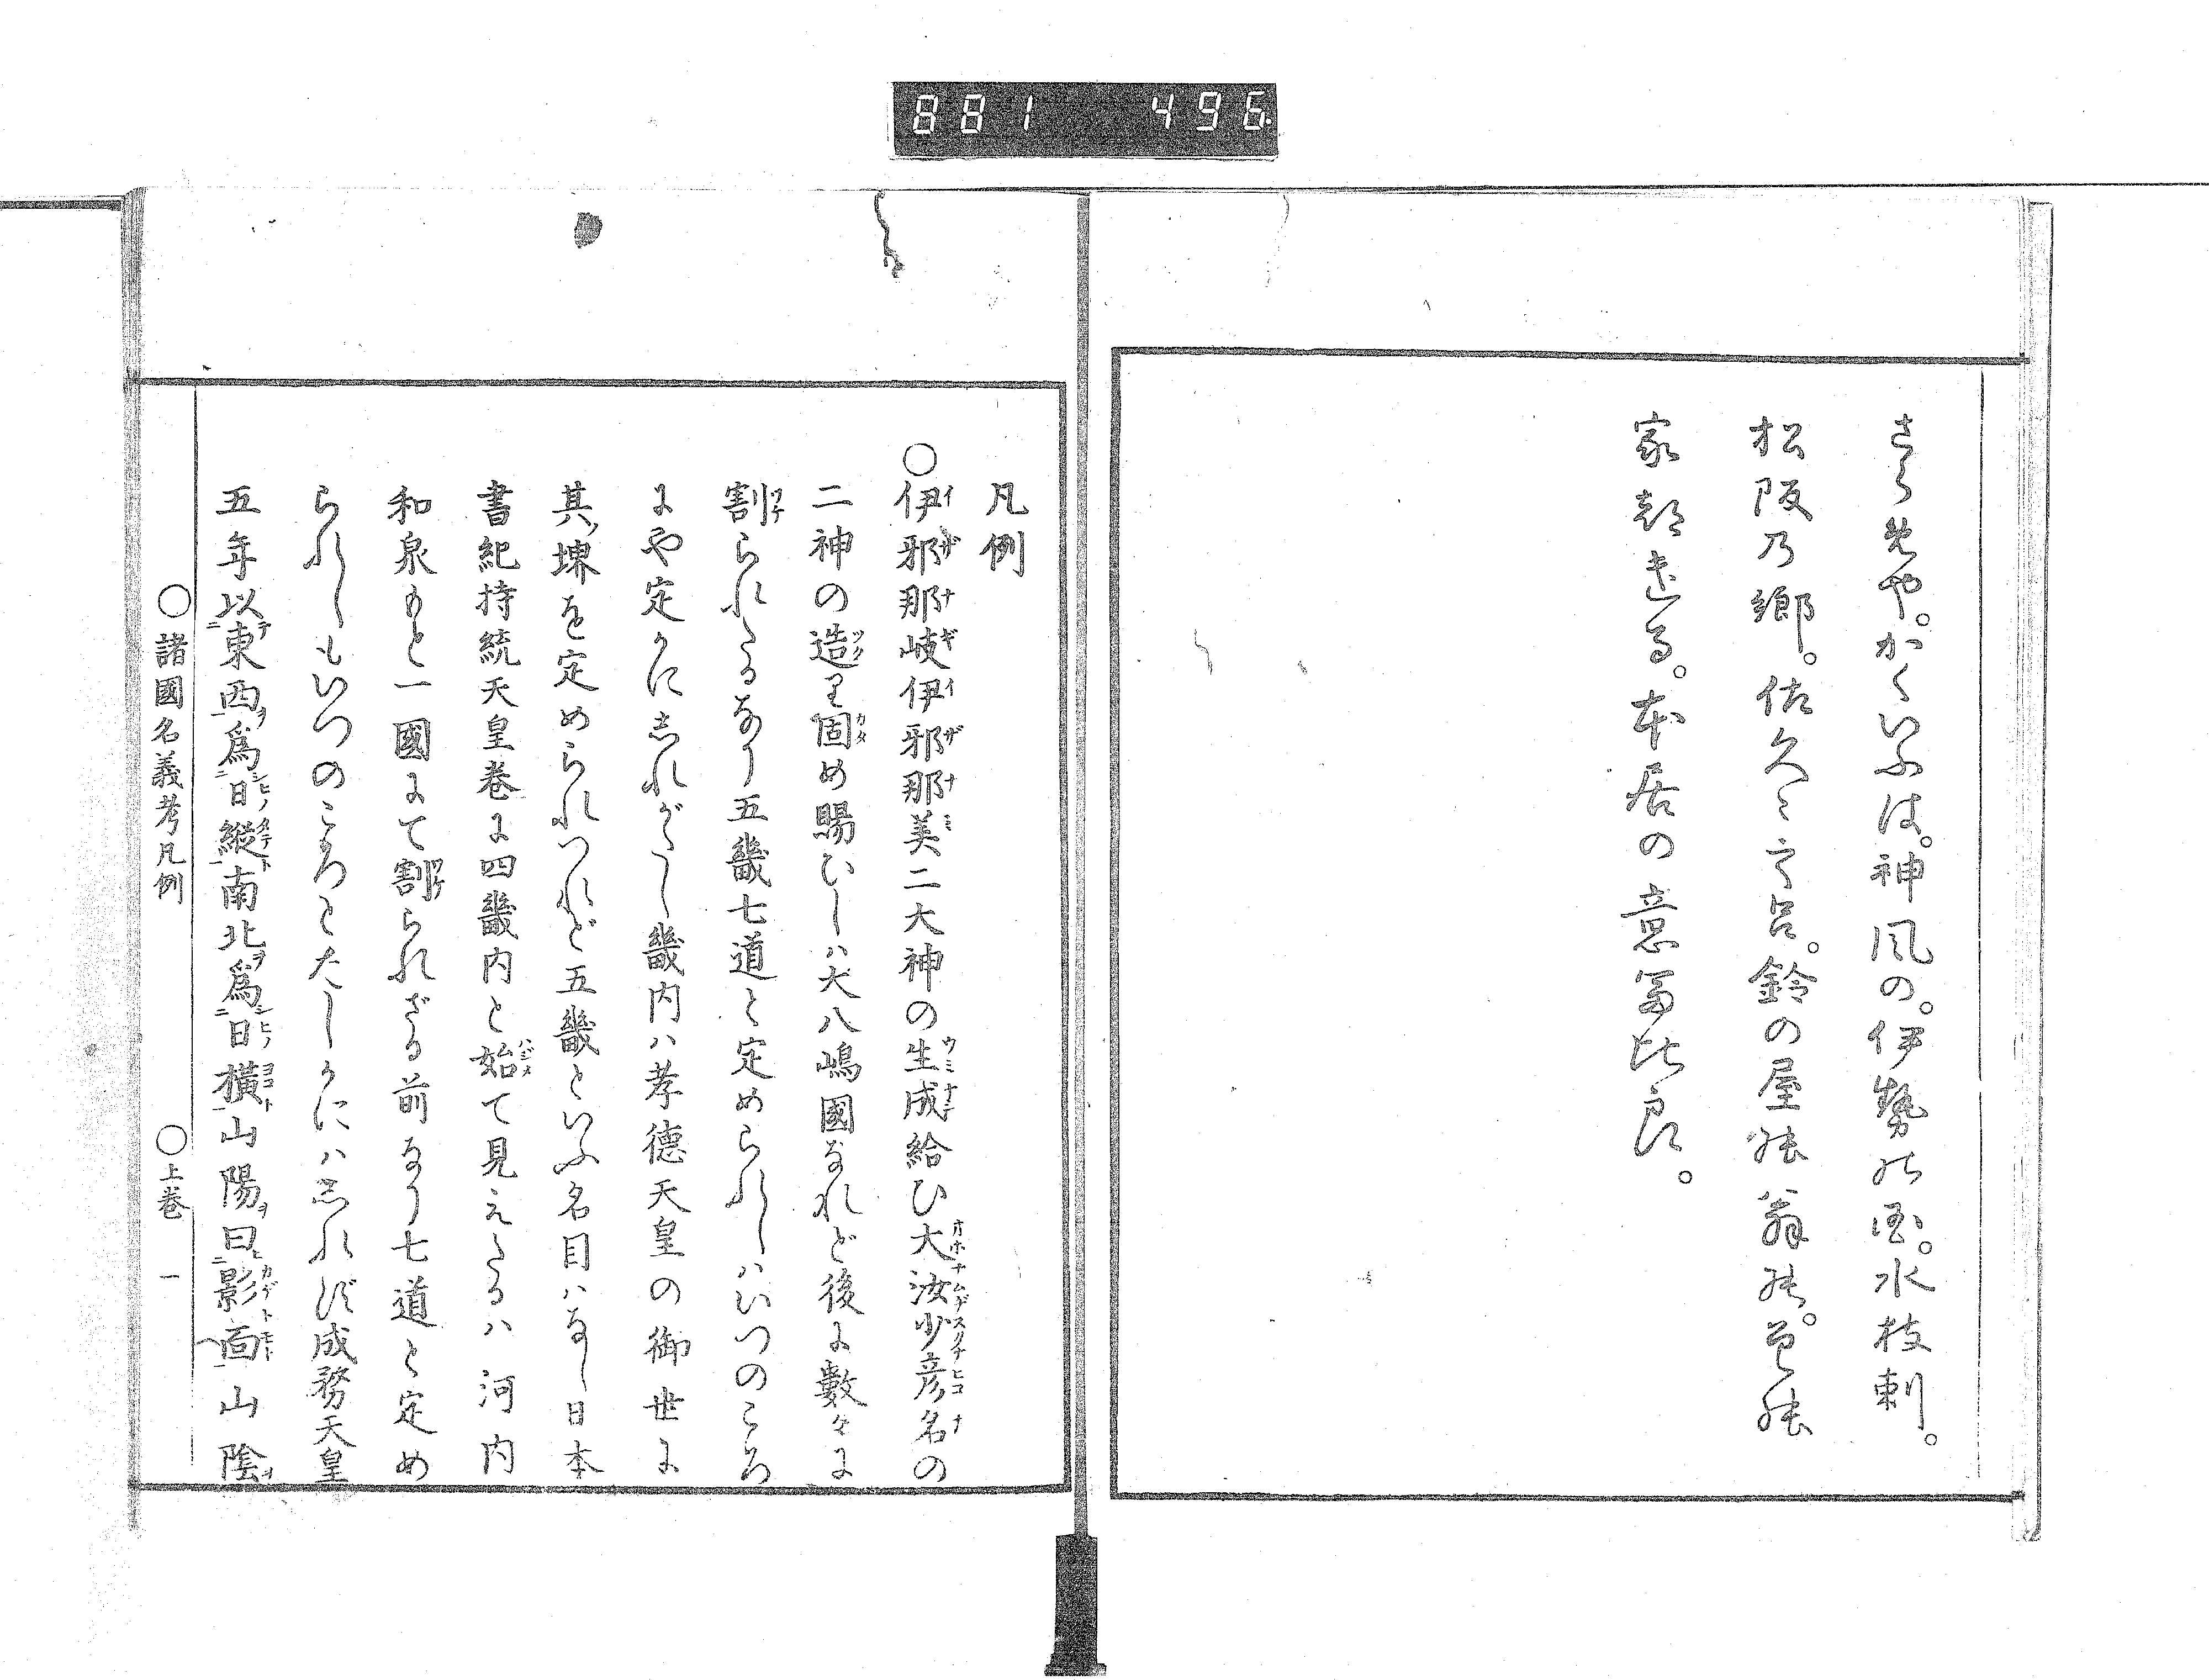 881 496
さらめや。かくいふは。神風の。伊勢の国。水枝刺。
松阪乃郷。佐久々、鈴の屋能翁能。
家。本居の意富比良。
凡例
○伊邪那岐伊邪那美二大神の生成給ひ大汝少彦名の
二神の造り固め賜ひしハ大八嶋國なれど後に數々に
割られたるなり五畿七道と定められしハいつのころ
にや定かにしれがたし畿内ハ孝德天皇の御世に
其堺を定められつれど五畿といふ名目ハなし日本
書紀持統天皇卷に四畿内と始て見えたるハ河内
和泉もと一國にて割られざる前なり七道と定め
られしもいつのころとたしかにハしれず成務天皇
五年以東西爲日縱南北爲日橫山陽曰影面山陰
○諸國名義考凡例 ○上卷 一